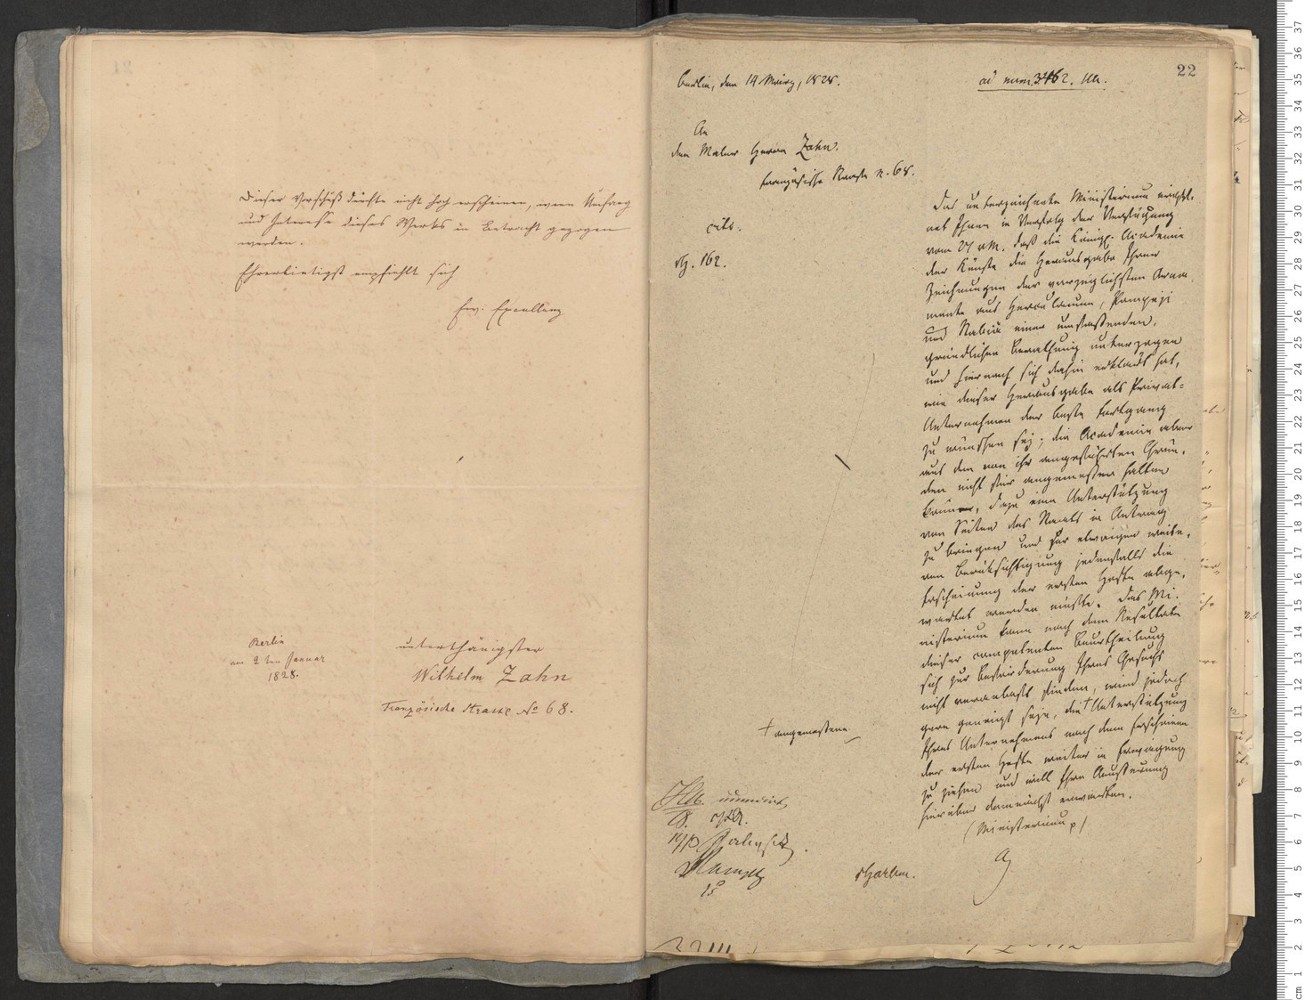 Dieser Vorschuß dürfte nicht hoch erscheinen, wenn Umfang
und Interesse dieses Werks in Betracht gezogen
werden.
Ehrerbietigst empfiehlt sich
Ew. Excellenz
Berlin
am 2ten Januar
1828.
unterthänigster
Wilhelm Zahn
Französische Strasse No 68.
22
Berlin, den 14 März, 1828.
ad num. 3462.
An
den Maler Herrn Zahn.
französische Straße n. 68.
cito.
162.
Das unterzeichnete Ministerium eröff-
net Ihnen in Verfolg der Verfügung
vom 27 v.M. daß die Königl. Academie
der Künste die Herausgabe Ihrer
Zeichnungen der vorzüglichsten Orna-
mente aus Herculanum, Pompeji
und Stabiä einer umfassenden,
gründlichen Berathung unterzogen
und hiernach sich dahin erklärt hat,
wie dieser Herausgabe als Privat-
Unternehmen der beste Fortgang
zu wünschen sey; die Academie aber
aus den von ihr angeführten Grün-
den nicht für angemessen halten
könne, dazu eine Unterstützung
von Seiten des Staats in Antrag
zu bringen und zur etwaigen weite-
ren Berücksichtigung jedenfalls die
Erscheinung der ersten Hefte abge-
wartet werden müßte. Das Mi-
nisterium kann nach dem Resultate
dieser competenten Beurtheilung
sich zur Beförderung Ihres Gesuchs
nicht veranlaßt finden, wird jedoch
gern geneigt seyn, die + Unterstützung
Ihres Unternehmens nach dem Erscheinen
der ersten Hefte weiter in Erwägung
zu ziehen und will Ihre Äusserung
hierüber demnächst erwarten.
(Ministerium p)
+ angemessene